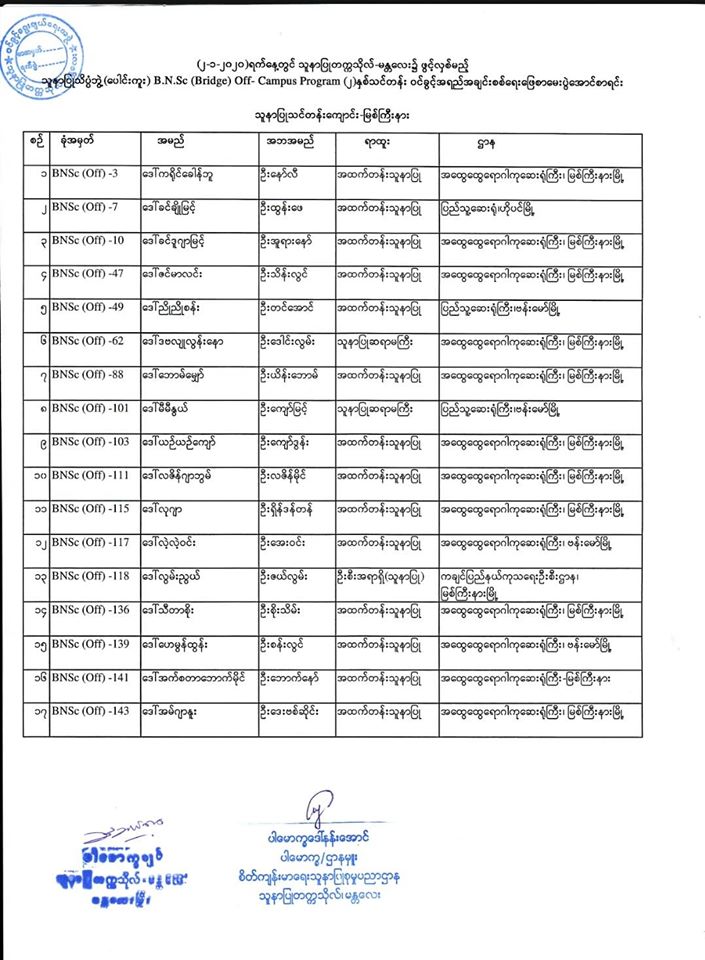 (၂-၁-၂၀၂၀)ရက်နေ့တွင် သူနာပြုတက္ကသိုလ်-မန္တလေး၌ ဖွင့်လှစ်မည့်
သူနာပြုသိပ္ပံဘွဲ့(ပေါင်းကူး) B.N.Sc (Bridge) Off- Campus Program (၂)နှစ်သင်တန်း ဝင်ခွင့်အရည်အချင်းစစ်ရေးဖြေစာမေးပွဲအောင်စာရင်း
သူနာပြုသင်တန်းကျောင်း-မြစ်ကြီးနား
စဉ် ခုံအမှတ် အမည် အဘအမည် ရာထူး ဌာန
၁ BNSc (Off) -3 ဒေါ်ကရိုင်ခေါန်ဘူ ဦးနော်လီ အထက်တန်းသူနာပြု အထွေထွေရောဂါကုဆေးရုံကြီး၊ မြစ်ကြီးနားမြို့
၂ BNSc (Off) -7 ဒေါ်ခင်ချိုမြင့် ဦးထွန်းဖေ အထက်တန်းသူနာပြု ပြည်သူ့ဆေးရုံ၊ဟိုပင်မြို့
၃ BNSc (Off) -10 ဒေါ်ခင်ဒူဂျာမြင့် ဦးအူရားနော် အထက်တန်းသူနာပြု အထွေထွေရောဂါကုဆေးရုံကြီး၊ မြစ်ကြီးနားမြို့
၄ BNSc (Off) -47 ဒေါ်ဇင်မာလင်း ဦးသိန်းလွင် အထက်တန်းသူနာပြု အထွေထွေရောဂါကုဆေးရုံကြီး၊ မြစ်ကြီးနားမြို့
၅ BNSc (Off) -49 ဒေါ်ညိုညိုစန်း ဦးတင်အောင် အထက်တန်းသူနာပြု ပြည်သူ့ဆေးရုံကြီး၊ဗန်းမော်မြို့
၆ BNSc (Off) -62 ဒေါ်ဒဗလျုလွန်းနော ဦးဒေါင်းလွမ်း သူနာပြုဆရာမကြီး အထွေထွေရောဂါကုဆေးရုံကြီး၊ မြစ်ကြီးနားမြို့
၇ BNSc (Off) -88 ဒေါ်ဘောမ်မျှော် ဦးယိန်းဘောမ် အထက်တန်းသူနာပြု အထွေထွေရောဂါကုဆေးရုံကြီး၊ မြစ်ကြီးနားမြို့
၈ BNSc (Off) -101 ဒေါ်မီမီနွယ် ဦးကျော်မြင့် သူနာပြုဆရာမကြီး ပြည်သူ့ဆေးရုံကြီး၊ဗန်းမော်မြို့
၉ BNSc (Off) -103 ဒေါ်ယဉ်ယဉ်ကျော် ဦးကျော်ဒွန်း အထက်တန်းသူနာပြု အထွေထွေရောဂါကုဆေးရုံကြီး၊ မြစ်ကြီးနားမြို့
၁၀ BNSc (Off) -111 ဒေါ်လဇိန်ဂျာဘွမ် ဦးလဇိန်မိုင် အထက်တန်းသူနာပြု အထွေထွေရောဂါကုဆေးရုံကြီး၊ မြစ်ကြီးနားမြို့
၁၁ BNSc (Off) -115 ဒေါ်လုဂျာ ဦးရှိန်ဒန်တန် အထက်တန်းသူနာပြု အထွေထွေရောဂါကုဆေးရုံကြီး၊ မြစ်ကြီးနားမြို့
၁၂ BNSc (Off) -117 ဒေါ်လဲ့လဲ့ဝင်း ဦးအေးဝင်း အထက်တန်းသူနာပြု အထွေထွေရောဂါကုဆေးရုံကြီး၊ ဗန်းမော်မြို့
၁၃ BNSc (Off) -118 ဒေါ်လွမ်းညွယ် ဦးဇယ်လွမ်း ဦးစီးအရာရှိ(သူနာပြု) ကချင်ပြည်နယ်ကုသရေးဦးစီးဌာန၊
မြစ်ကြီးနားမြို့
၁၄ BNSc (Off) -136 ဒေါ်သီတာစိုး ဦးစိုးသိမ်း အထက်တန်းသူနာပြု အထွေထွေရောဂါကုဆေးရုံကြီး၊ မြစ်ကြီးနားမြို့
၁၅ BNSc (Off) -139 ဒေါ်ဟေမွန်ထွန်း ဦးစန်းလွင် အထက်တန်းသူနာပြု အထွေထွေရောဂါကုဆေးရုံကြီး၊ ဗန်းမော်မြို့
၁၆ BNSc (Off) -141 ဒေါ်အက်စတာဘောက်မိုင် ဦးဘောက်နော် အထက်တန်းသူနာပြု အထွေထွေရောဂါကုဆေးရုံကြီး-မြစ်ကြီးနား
၁၇ BNSc (Off) -143 ဒေါ်အမ်ဂျာနူး ဦးဒေးဗစ်ဆိုင်း အထက်တန်းသူနာပြု အထွေထွေရောဂါကုဆေးရုံကြီး၊ မြစ်ကြီးနားမြို့
ပါမောက္ခဒေါ်နန်းအောင်
ပါမောက္ခ/ဌာနမှူး
စိတ်ကျန်းမာရေးသူနာပြုစုမှုပညာဌာန
သူနာပြုတက္ကသိုလ်၊မန္တလေး
ပါမောက္ခချုပ်
သူနာပြုတက္ကသိုလ်-မန္တလေး
မန္တလေးမြို့